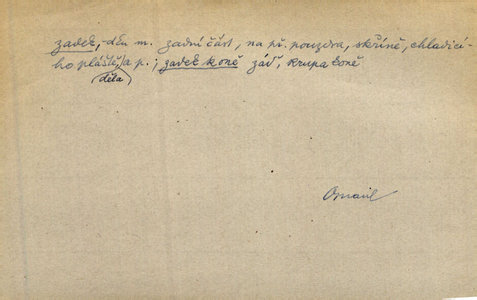 zadek, -dku m. zadní část, na př. pouzdra, skříně, chladicí-
ho pláště, děla a p.; zadek koně záď, krupa koně